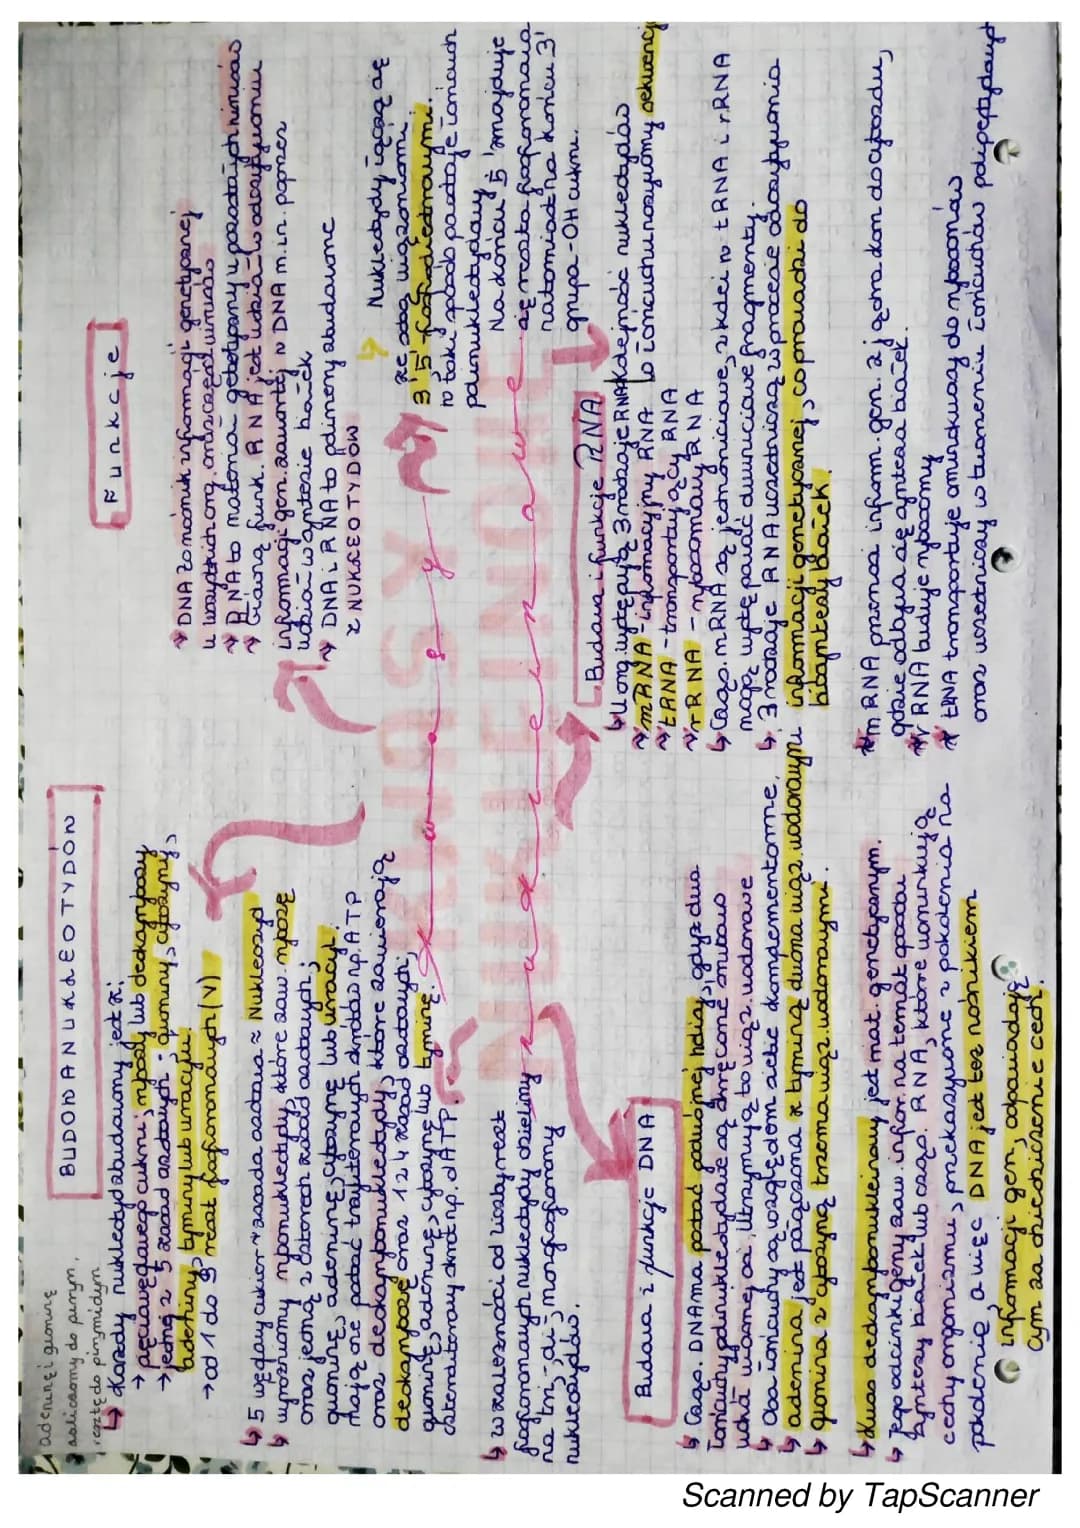 adeninę i guaninę
zaliczamy do puryn,
resztę do pirymidyn
BUDOWA NUKLEOTYDÓW
każdy nukleotyd zbudowany jest z:
→ pięciowęglowego cukru; rybozy lub deoksyrybozy
→ jednej z 5 zasad azotowych: guaniny, cytozyny,
adeniny, tyminy lub uracylu
→ od 1 do 3 reszt fosforanowych (V)
5 węglowy cukier + zasada azotowa = Nukleozyd
wyróżniamy rybonukleotydy, które zaw. rybozę
oraz jedną z czterech zasad azotowych;
guaninę, adeninę, cytozynę lub uracyl.
Mają one postać trifosforanów np. ATP
oraz deoksyrybonukleotydy, które zawierają
deoksyrybozę oraz 1 z 4 zasad azotowych;
guaninę, adeninę, cytozynę lub tyminę.
np. dATP.
w zależności od liczby reszt
fosforanowych nukleotydy dzielimy
na tri-, di-, monofosforany
nukleozydów.
Funkcje
DNA to nośnik informacji genetycznej
u wszystkich org. oraz części wirusów
DNA to materiał genetyczny u pozostałych wirusów
Główną funk. RNA jest udział w odczytywaniu
informacji gen. zawartej w DNA m.in. poprzez
udział w syntezie białek
DNA i RNA to polimery zbudowane
z NUKLEOTYDÓW
Nukleotydy łączą się
ze sobą wiązaniami
3' 5' fosfodiestrowymi.
w taki sposób powstaje łańcuch
polinukleotydowy
Na końcu 5' znajduje
się reszta fosforanowa
natomiast na końcu 3'
grupa -OH cukru.
Kwasy
nukleinowe
KWASY
NUKLEINOWE
Budowa i funkcje DNA
Cząs. DNA ma postać podwójnej helisy, gdyż dwa
łańcuchy polinukleotydowe są skręcone wokół
Oba łańcuchy są względem siebie komplementarne.
adenina jest połączona z tyminą dwoma wiąz. wodorowymi
guanina z cytozyną trzema wiąz. wodorowymi.
kwas deoksyrybonukleinowy jest mat. genetycznym.
Jego odcinki geny zaw. infor. na temat
syntezy białek lub cząs. RNA, które warunkują
cechy organizmu, przekazywane z pokolenia na
pokolenie, a więc DNA jest też nośnikiem
informacji gen, odpowiadają-
cym za dziedziczenie cech.
Budowa i funkcje RNA
U org. występują 3 rodzaje RNA
kolejność nukleotydów
w łańcuchu nazywamy sekwencją
mRNA - informacyjny RNA
tRNA - transportujący RNA
rRNA - rybosomalny RNA
Cząs. mRNA są jednoniciowe, z kolei w tRNA i rRNA
mogą wystepować dwuniciowe fragmenty.
3 rodzaje RNA uczestniczą w procesie odczytywania
informacji genetycznej, co prowadzi do
biosyntezy białek.
mRNA przenosi inform. gen. z j. gdra kom do cytozolu,
gdzie odbywa się synteza białek.
rRNA buduje rybosomy
tRNA transportuje aminokwasy do rybosomów
oraz uczestniczy w tworzeniu łańcuchów polipeptydowych
Scanned by TapScanner